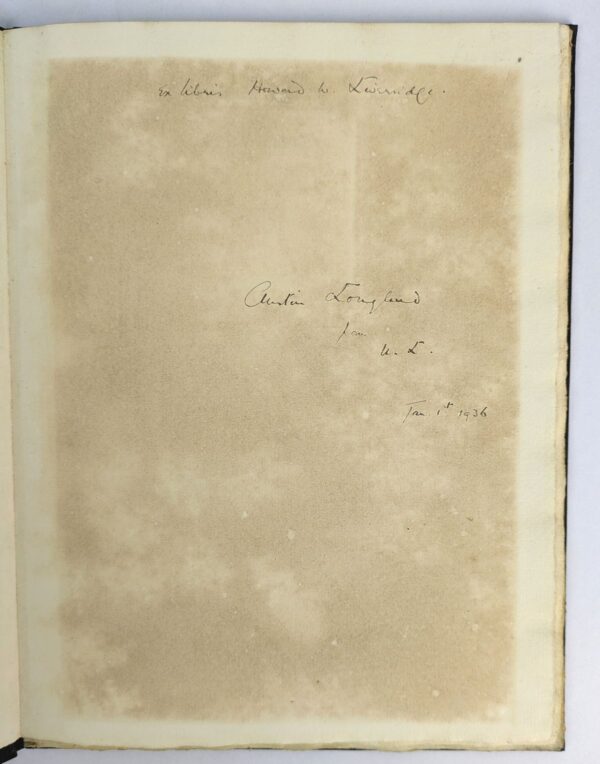 Ex libris Howard W. Liversidge.
Austin Longland
from
H. L.
Jan 1st 1936